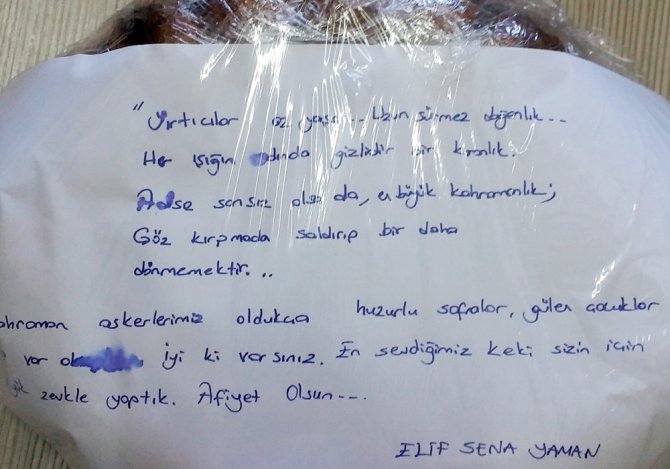 "Yırtıcılar az yaşar... Uzun sürmez doğanlık..
Her ışığın gizlidir bir
sansız olsa da, en büyük kahramanlık;
Göz kırpmada saldırıp bir daha
dönmemektir...
ahraman askerlerimiz oldukça huzurlu sofralar, gülen çocuklar
var İyi ki varsınız. En sevdiğimiz keki sizin için
zevkle yaptık. Afiyet Olsun---.
ELİF SENA YAMAN